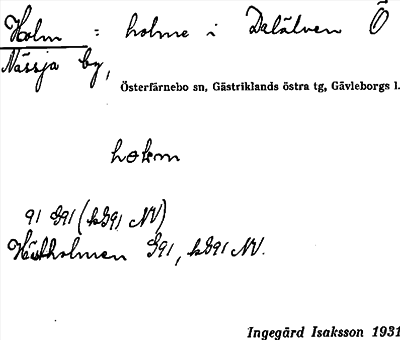 Holm = holme i Dalälven Ö
Nässja by,
Österfärnebo sn, Gästriklands östra tg, Gävleborgs l.
holm
91 G91 (kG91 NV)
Hästholmen G91, kG91 NV.
Ingegärd Isaksson 1931